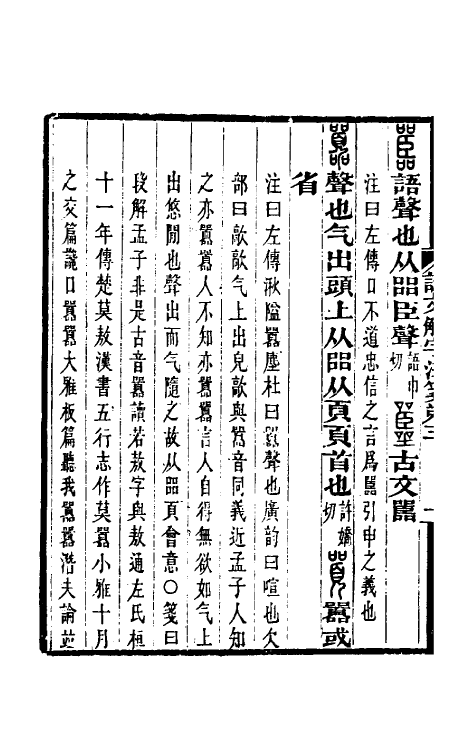 說文解字注箋第三
嚚語聲也从㗊臣聲語巾切古文嚚
注曰左傳口不道忠信之言爲嚚引申之義也
囂聲也气出頭上从㗊从頁頁首也許嬌切囂或
省
注曰左傳湫隘囂塵杜曰囂聲也廣韵曰喧也欠
部曰歊歊气上出皃歊與囂音同義近孟子人知
之亦囂囂人不知亦囂囂言人自得無欲如气上
出悠閒也聲出而气隨之故从㗊頁會意○箋曰
段解孟子非是古音囂讀若敖字與敖通左氏桓
十一年傳楚莫敖漢書五行志作莫囂小雅十月
之交篇讒口囂囂大雅板篇聽我囂囂潛夫論竝